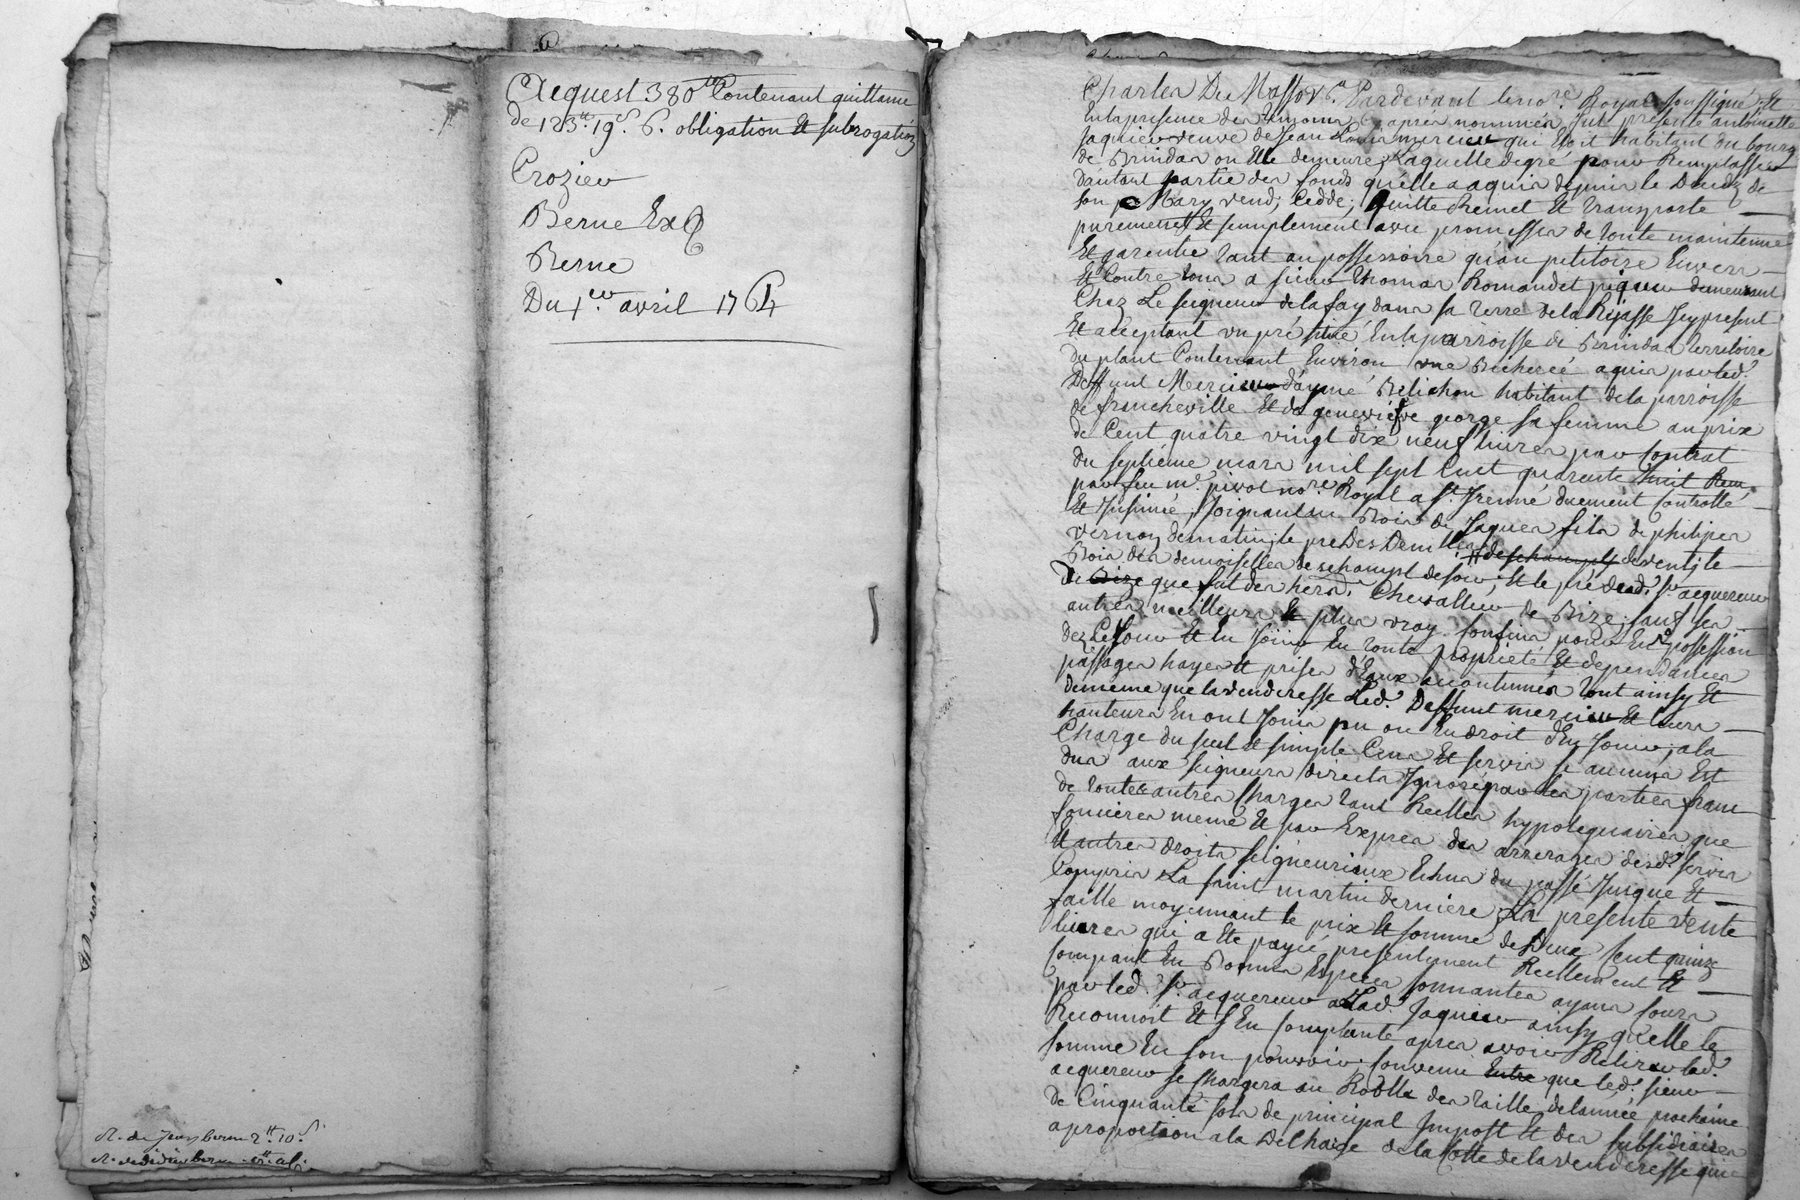 Acquest 380 ₶ Contenant quittance
de 123 ₶ 19 s 6. obligation Et subrogation
Crozier
Berne Exp
Berne
Du 1er avril 1764
R. de Jean berne 2 ₶ 10 s
Charles Du Masso
Pardevant le no.re Royal soussigné Et
En la presence des temoins cy apres nommés, fut presente antoinette
Jaquier veuve de Jean Louis mercier qui Etoit habitant du bourg
de Brindas ou Elle demeure, Laquelle degré pour Remplasser
dautant partie des fonds qu'elle a aquis depuis le Deceds de
son Mary vend, Cedde, Quitte Remet Et transporte
purement Et simplement avec promesses de toute maintenue
Et garentie tant au possessoire qu'au petitoire Envers
Et Contre tous a sieur thomas Romandet piqueur demeurant
Chez Le seigneur de lafay dans sa terre de la Rejasse Icy present
Et acceptant un pré situé En la parroisse de Brindas territoire
du plant Contenant Environ une Bicherée aquis par led.
Deffunt Mercier d'aymé Belichon habitant de la parroisse
de francheville Et de genevieve george sa femme au prix
de Cent quatre vingt dix neuf livres par Contrat
du septieme mars mil sept Cent quarente huit Receu
par feu me. pivot no.re Royal a St. Irenné duement Controllé
Et Insinué, Joignant un Bois de Jaques fils de philipes
vernay de matin, le pré Des Dem.lles deschamps de vent, le
Bois des demoiselles deschampt de soir, Et le pré dud. sr. acquereur
de Bize que fut des hers. Chevallier de Bize, sauf ses
autres meilleurs Et plus vray Confins pour En possession
dez Ce Jour Et En Joüir En toute proprieté Et dependances
passages hayes Et prises d'Eaux accoutumées tout ainsy Et
demême que la venderesse Led. Deffunt mercier Et leurs
hauteurs En ont Jouis pu ou Eu droit d'En Jouir, a la
Charge du seul Et simple Cens Et servis si aucuns Est
Dus aux seigneurs directs Ignoré par les parties franc
de toutes autres Charges tant Reelles hypotequaires que
foncieres meme Et par Expres des arrerages desd. servis
Et autres droits seigneuriaux Echus du passé Jusque Et
Compris La saint martin derniere, La presente vente
faitte moyennant le prix Et somme de Deux Cent quinze
livres qui a Eté payée presentement Reellement Et
Comptant En Bonnes Especes sonnantes ayans Cours
par led. sr. acquereur a Lad. Jaquier ainsy qu'elle le
Reconnoit Et s'En Contente apres avoir Retiré lad.
somme En son pouvoir, Convenu Entre que led. sieur
acquereur se Chargera au Rolle des taille de lannée prochaine
de Cinquante sols de principal Impost Et des subsidiaires
a proportion a la Decharge de la Cotte de la venderesse qui